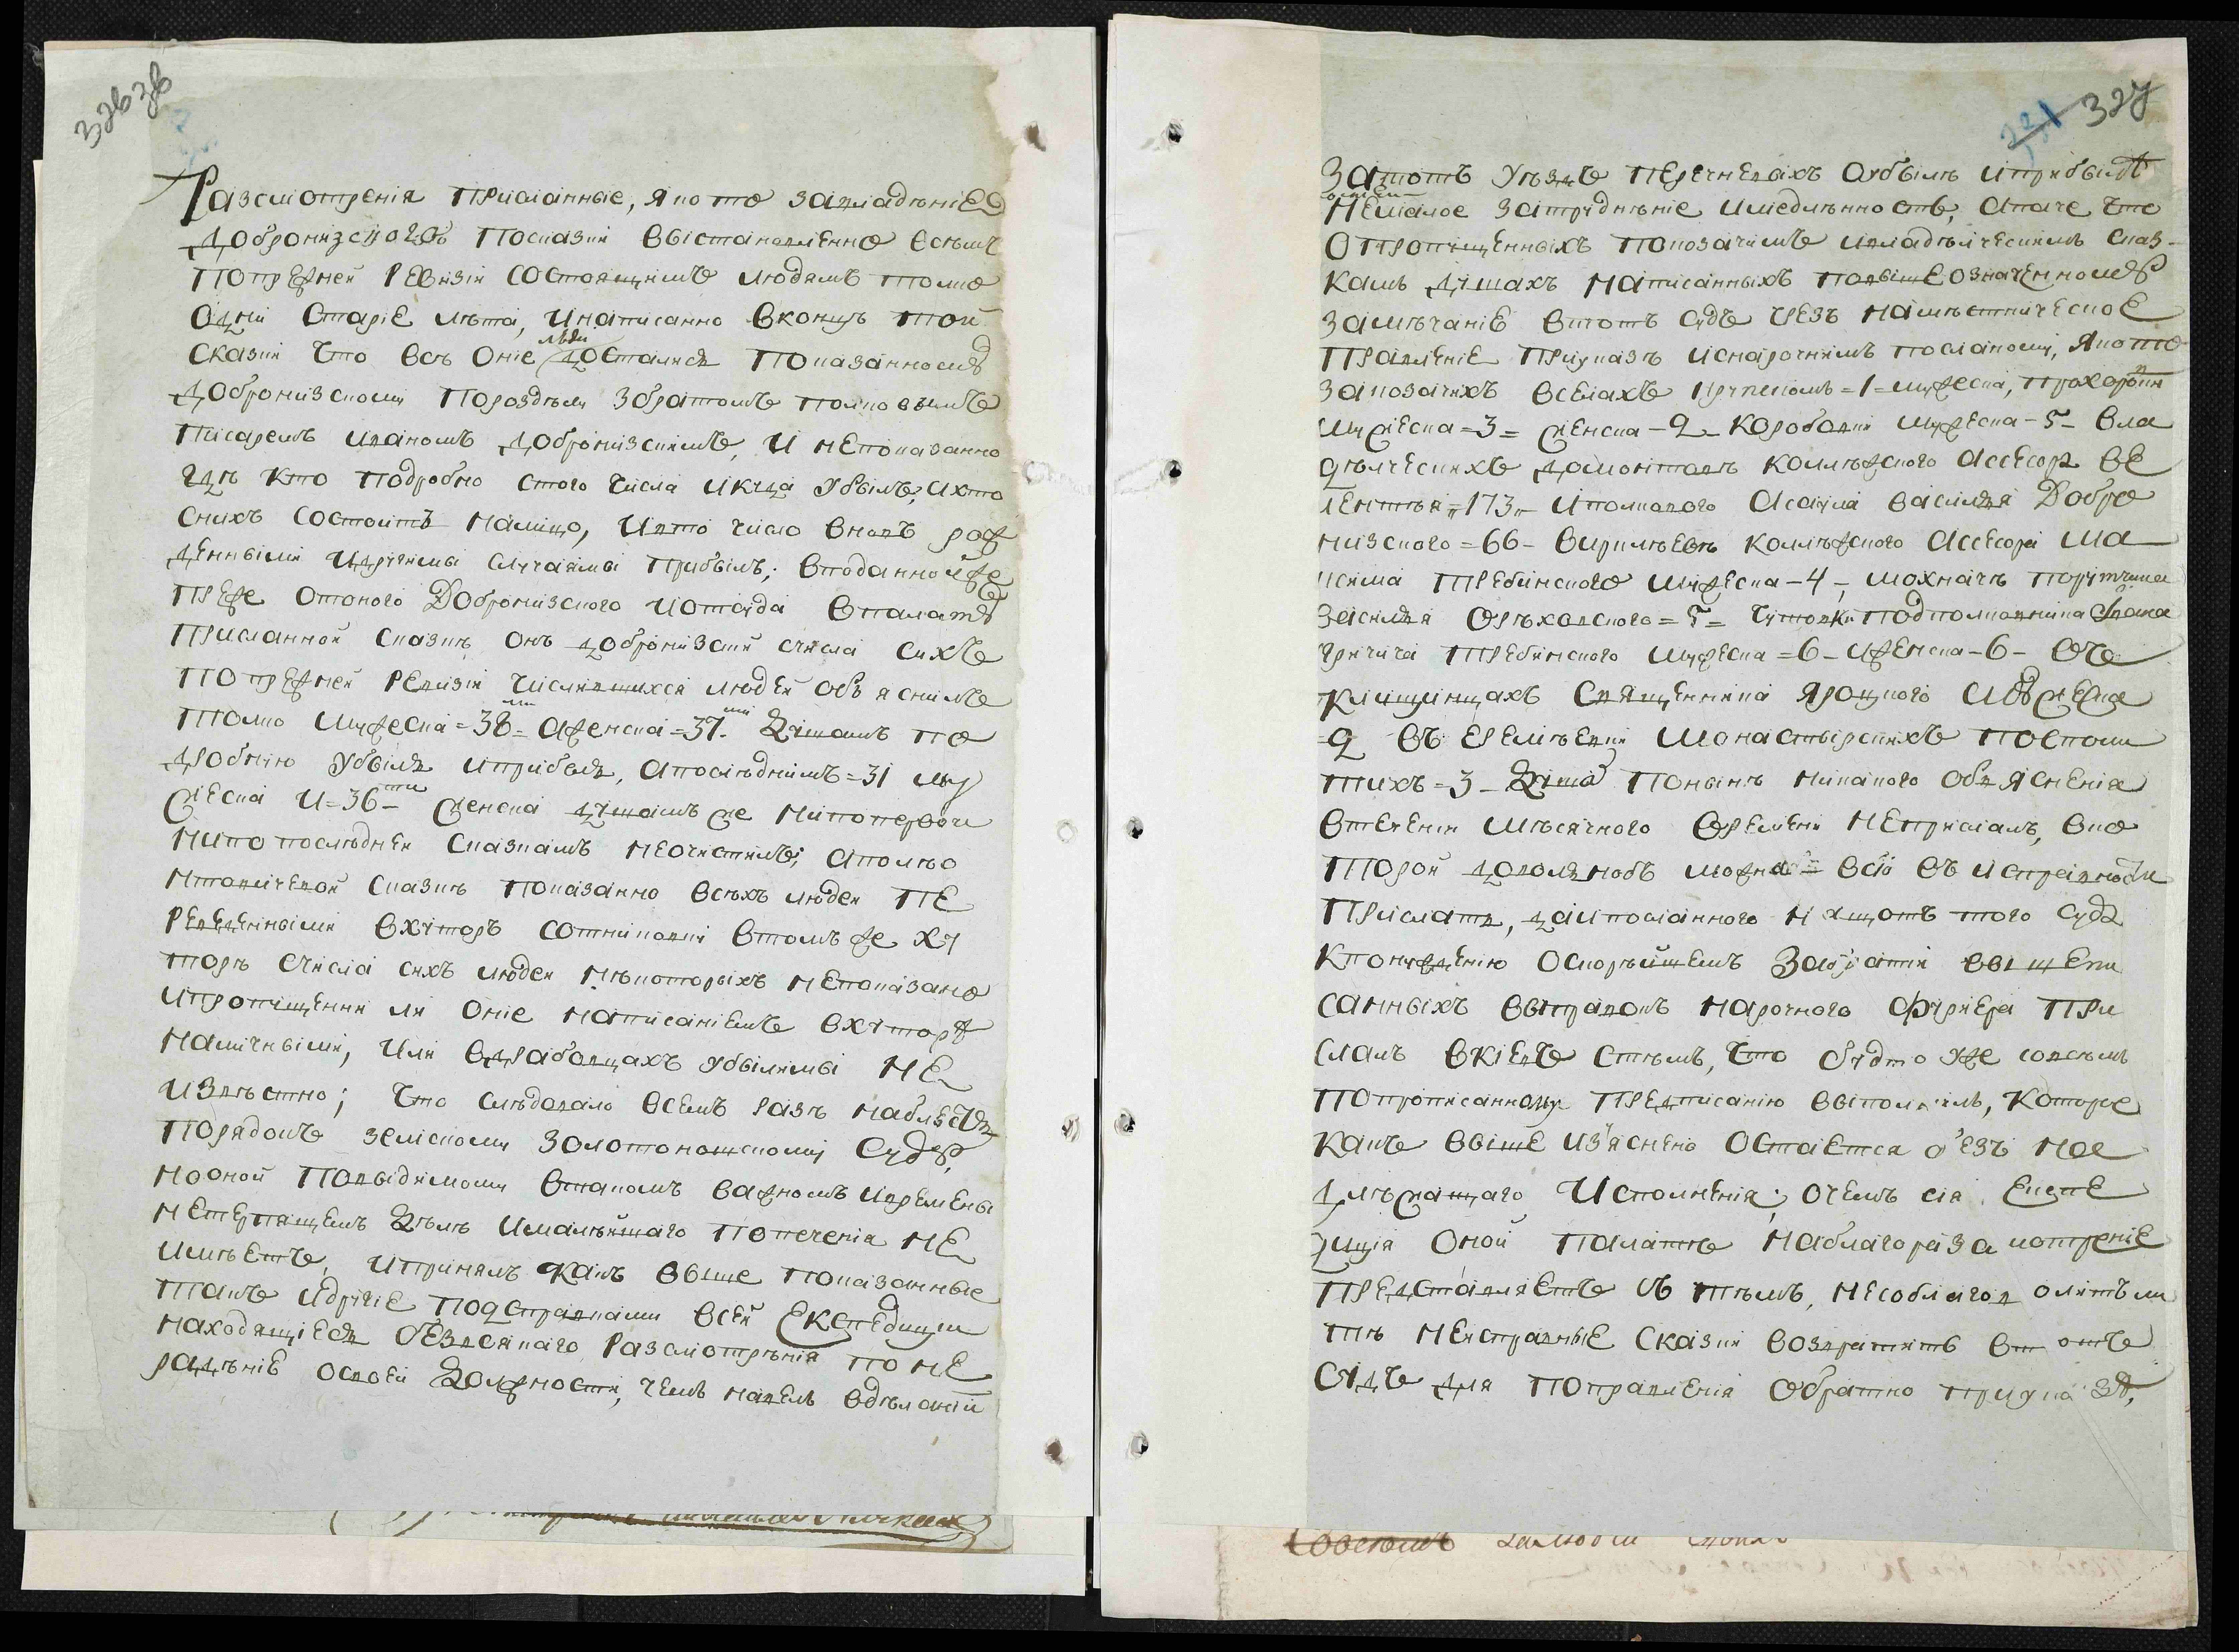 326 зв
Разсмотренія присланные, якото завладѣніе
Добронизского посказки выстановленно всѣмъ
попрежней ревизіи состоящимъ людямъ толко
одни старіе лѣта, инаписанно вконцѣ той
сказки что всѣ оніе люди досталися показанному
Добронизскому пораздѣлу збратомъ полковымъ
писаремъ иваномъ Добронизскимъ, и непоказанно
гдѣ кто подробно стого числа икуда убылъ, ихто
снихъ состоитъ налицо, ивто число вновь рож
денными идругими случаями прибылъ; вподанной же
преже отоного Добронизского иотсуда впалату
присланной сказкѣ онъ добронизский счисла сихъ
попрежней ревизіи числившихся людей объяснилъ
толко мужеска =38= аженска =37= душамъ по
дробную убыль иприбыль, апослѣднимъ =31 му
жеска и =36= женска душамъ же нипопервой
нипопослѣдней сказкамъ неочистилъ; аполко
вничевой сказкѣ показанно всѣхъ людей пе
реведенными вхуторъ сотниковки втомъ же ху
торѣ счисла сихъ людей нѣкоторыхъ непоказано
ипропущенни ли оніе написаніемъ вхуторѣ
наличными, или вдрабовцахъ убылими не
извѣстно; что слѣдовало всемъ разѣ наблюсть
порядомъ земскому Золотоношскому Суду,
нооной повидимому втакомъ важномъ ивремены
нетерпящемъ дѣлѣ ималѣйшаго попеченія не
имѣетъ, ипринялъ какъ выше показанные
такъ идругіе подсправками всей експедиции
находящіеся безвсякаго разсмотрѣнія поне
радѣніе освоей должности, чемъ навелъ вдѣланіи
221 327
Затотъ уѣздъ перечневыхъ о убылѣ иприбылѣ
немалое затрудненіе имедлѣнность, апаче что
отпропущенныхъ покозачимъ ивладѣлческимъ сказ-
камъ душахъ написанныхъ повышеозначенному
замѣчаніе втотъ судъ чрезъ намѣстническое
правленіе приуказѣ иснарочнимъ посланому, якото
закозачихъ вселахъ =1= мужеска, прохоровки
мужеска =3= женска -2- коробовки мужеска -5- вла
дѣлческихъ домонтовѣ коллѣжского ассесора ве
=173= иполкового асаула василия Добро
низского =66- вирилѣевѣ коллѣжского ассесора ма
ксима требинского мужеска -4-, мохначѣ порутчика
василия орѣховского =5= чутовки подполковника Ивана
требинского мужеска =6- иженска -6- Въ
клищинцахъ священника яроцкого мужеска
=2 въ еремѣевки монастырскихъ посполи
тихъ =3- душа понынѣ никакого объясненія
втеченіи мѣсячного времени неприслалъ, вко
торой доволно бъ можна всю въ исправности
прислать, даипосланного нащотъ того суда
кпонужденію оскорѣйшемъ
санныхъ выправокъ нарочного фурьера при
слалъ вкіевъ стѣмъ, что будто же совсемъ
попрописанному предписанію выполнилъ, которое
какъ выше изяснено остается безъ ное
длѣжащаго исполненія; очемъ сія експе
диція оной палатѣ наблагоразсмотреніе
представляетъ съ тѣмъ, несоблаговолитъ ли
тѣ неисправные сказки возвратить втотъ
судъ для поправленія обратно приуказѣ,